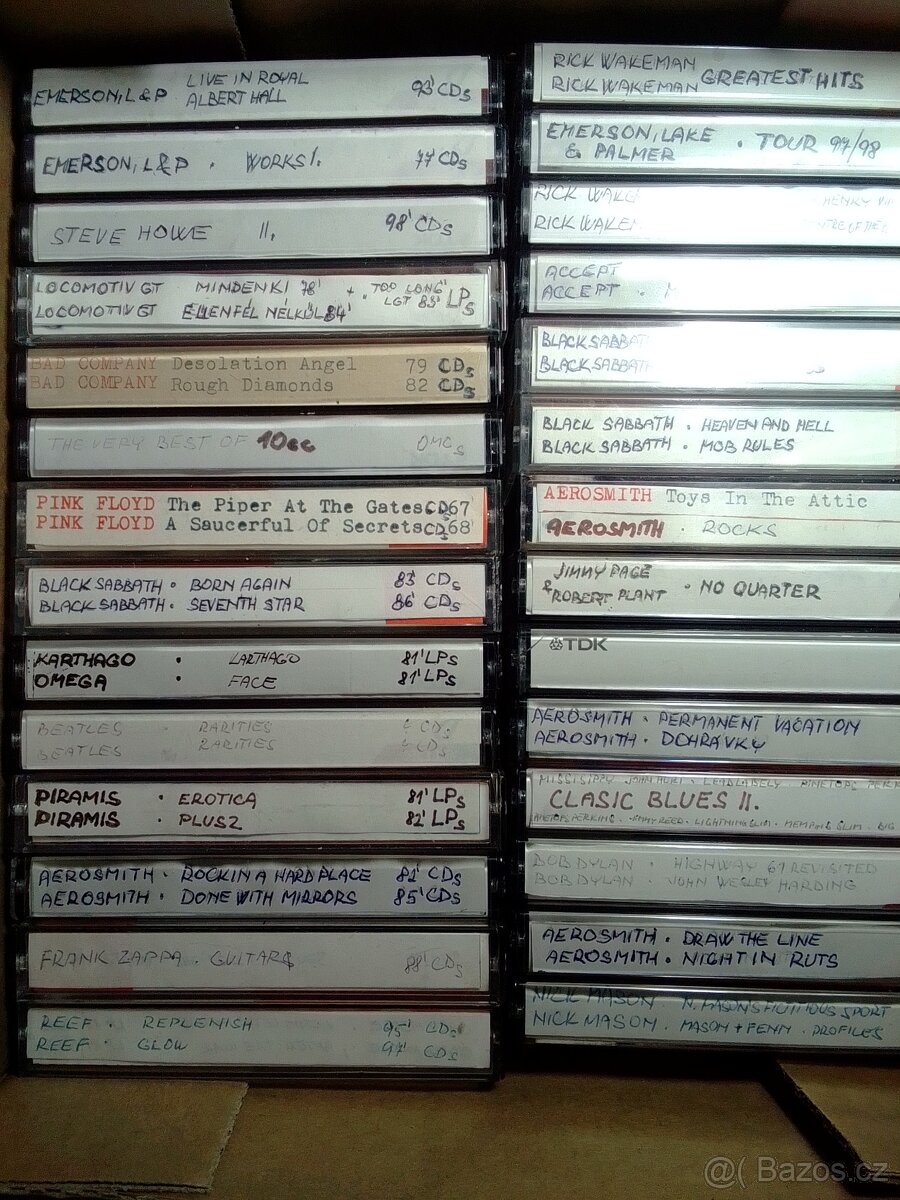 EMERSON, L&P LIVE IN ROYAL ALBERT HALL 93' CDs
EMERSON, L&P . WORKS I. 77 CDs
STEVE HOWE II. 98' CDs
LOCOMOTIV GT . MINDENKI 78' + . TOO LONG' LGT 83' LPs
LOCOMOTIV GT ELLENFÉL NÉLKÜL 84'
BAD COMPANY Desolation Angel 79 CDs
BAD COMPANY Rough Diamonds 82 CDs
THE VERY BEST OF 10cc
PINK FLOYD The Piper At The Gates CDs 67
PINK FLOYD A Saucerful Of Secrets CDs 68
BLACK SABBATH . BORN AGAIN 83' CDs
BLACK SABBATH . SEVENTH STAR 86' CDs
KARTHAGO . LARTHAGO 81' LPs
OMEGA . FACE 81' LPs
BEATLES . RARITIES CDs
BEATLES . RARITIES CDs
PIRAMIS . EROTICA 81' LPs
PIRAMIS . PLUSZ 82' LPs
AEROSMITH . ROCK IN A HARD PLACE 82' CDs
AEROSMITH . DONE WITH MIRRORS 85' CDs
FRANK ZAPPA . GUITARS 88' CDs
REEF . REPLENISH 95' CDs
REEF . GLOW 97' CDs
RICK WAKEMAN
RICK WAKEMAN GREATEST HITS
EMERSON, LAKE & PALMER . TOUR 97/98
RICK WAKE HENRY
RICK WAKE
ACCEPT
ACCEPT .
BLACK SABBAT
BLACK SABBATH
BLACK SABBATH . HEAVEN AND HELL
BLACK SABBATH . MOB RULES
AEROSMITH Toys In The Attic
AEROSMITH . ROCKS
JIMMY PAGE
& ROBERT PLANT . NO QUARTER
TDK
AEROSMITH . PERMANENT VACATION
AEROSMITH . DOHRÁVKY
MISSISIPPY JOHN HURT . LEADBELLY
CLASIC BLUES II.
JIMMY REED . LIGHTNING SLIM . MEMPHIS SLIM . BIG
BOB DYLAN . HIGHWAY 61 REVISITED
BOB DYLAN . JOHN WESLEY HARDING
AEROSMITH . DRAW THE LINE
AEROSMITH . NIGHT IN RUTS
NICK MASON . N. MASONS FICTITIOUS SPORT
NICK MASON . MASON + FENN . PROFILES
@( Bazos.cz